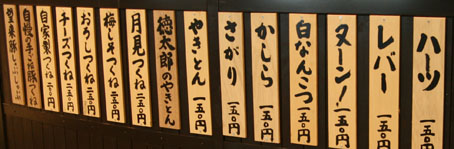 ハーツ 一五〇円
レバー 一五〇円
タン! 一五〇円
白なんこつ 一五〇円
かしら 一五〇円
さがり 一五〇円
やきとん 一五〇円
徳太郎のやきとん
月見つくね 二五〇円
梅しそつくね 二五〇円
おろしつくね 二五〇円
チーズつくね 二五〇円
自家製つくね 二五〇円
自慢の手ごね豚つくね